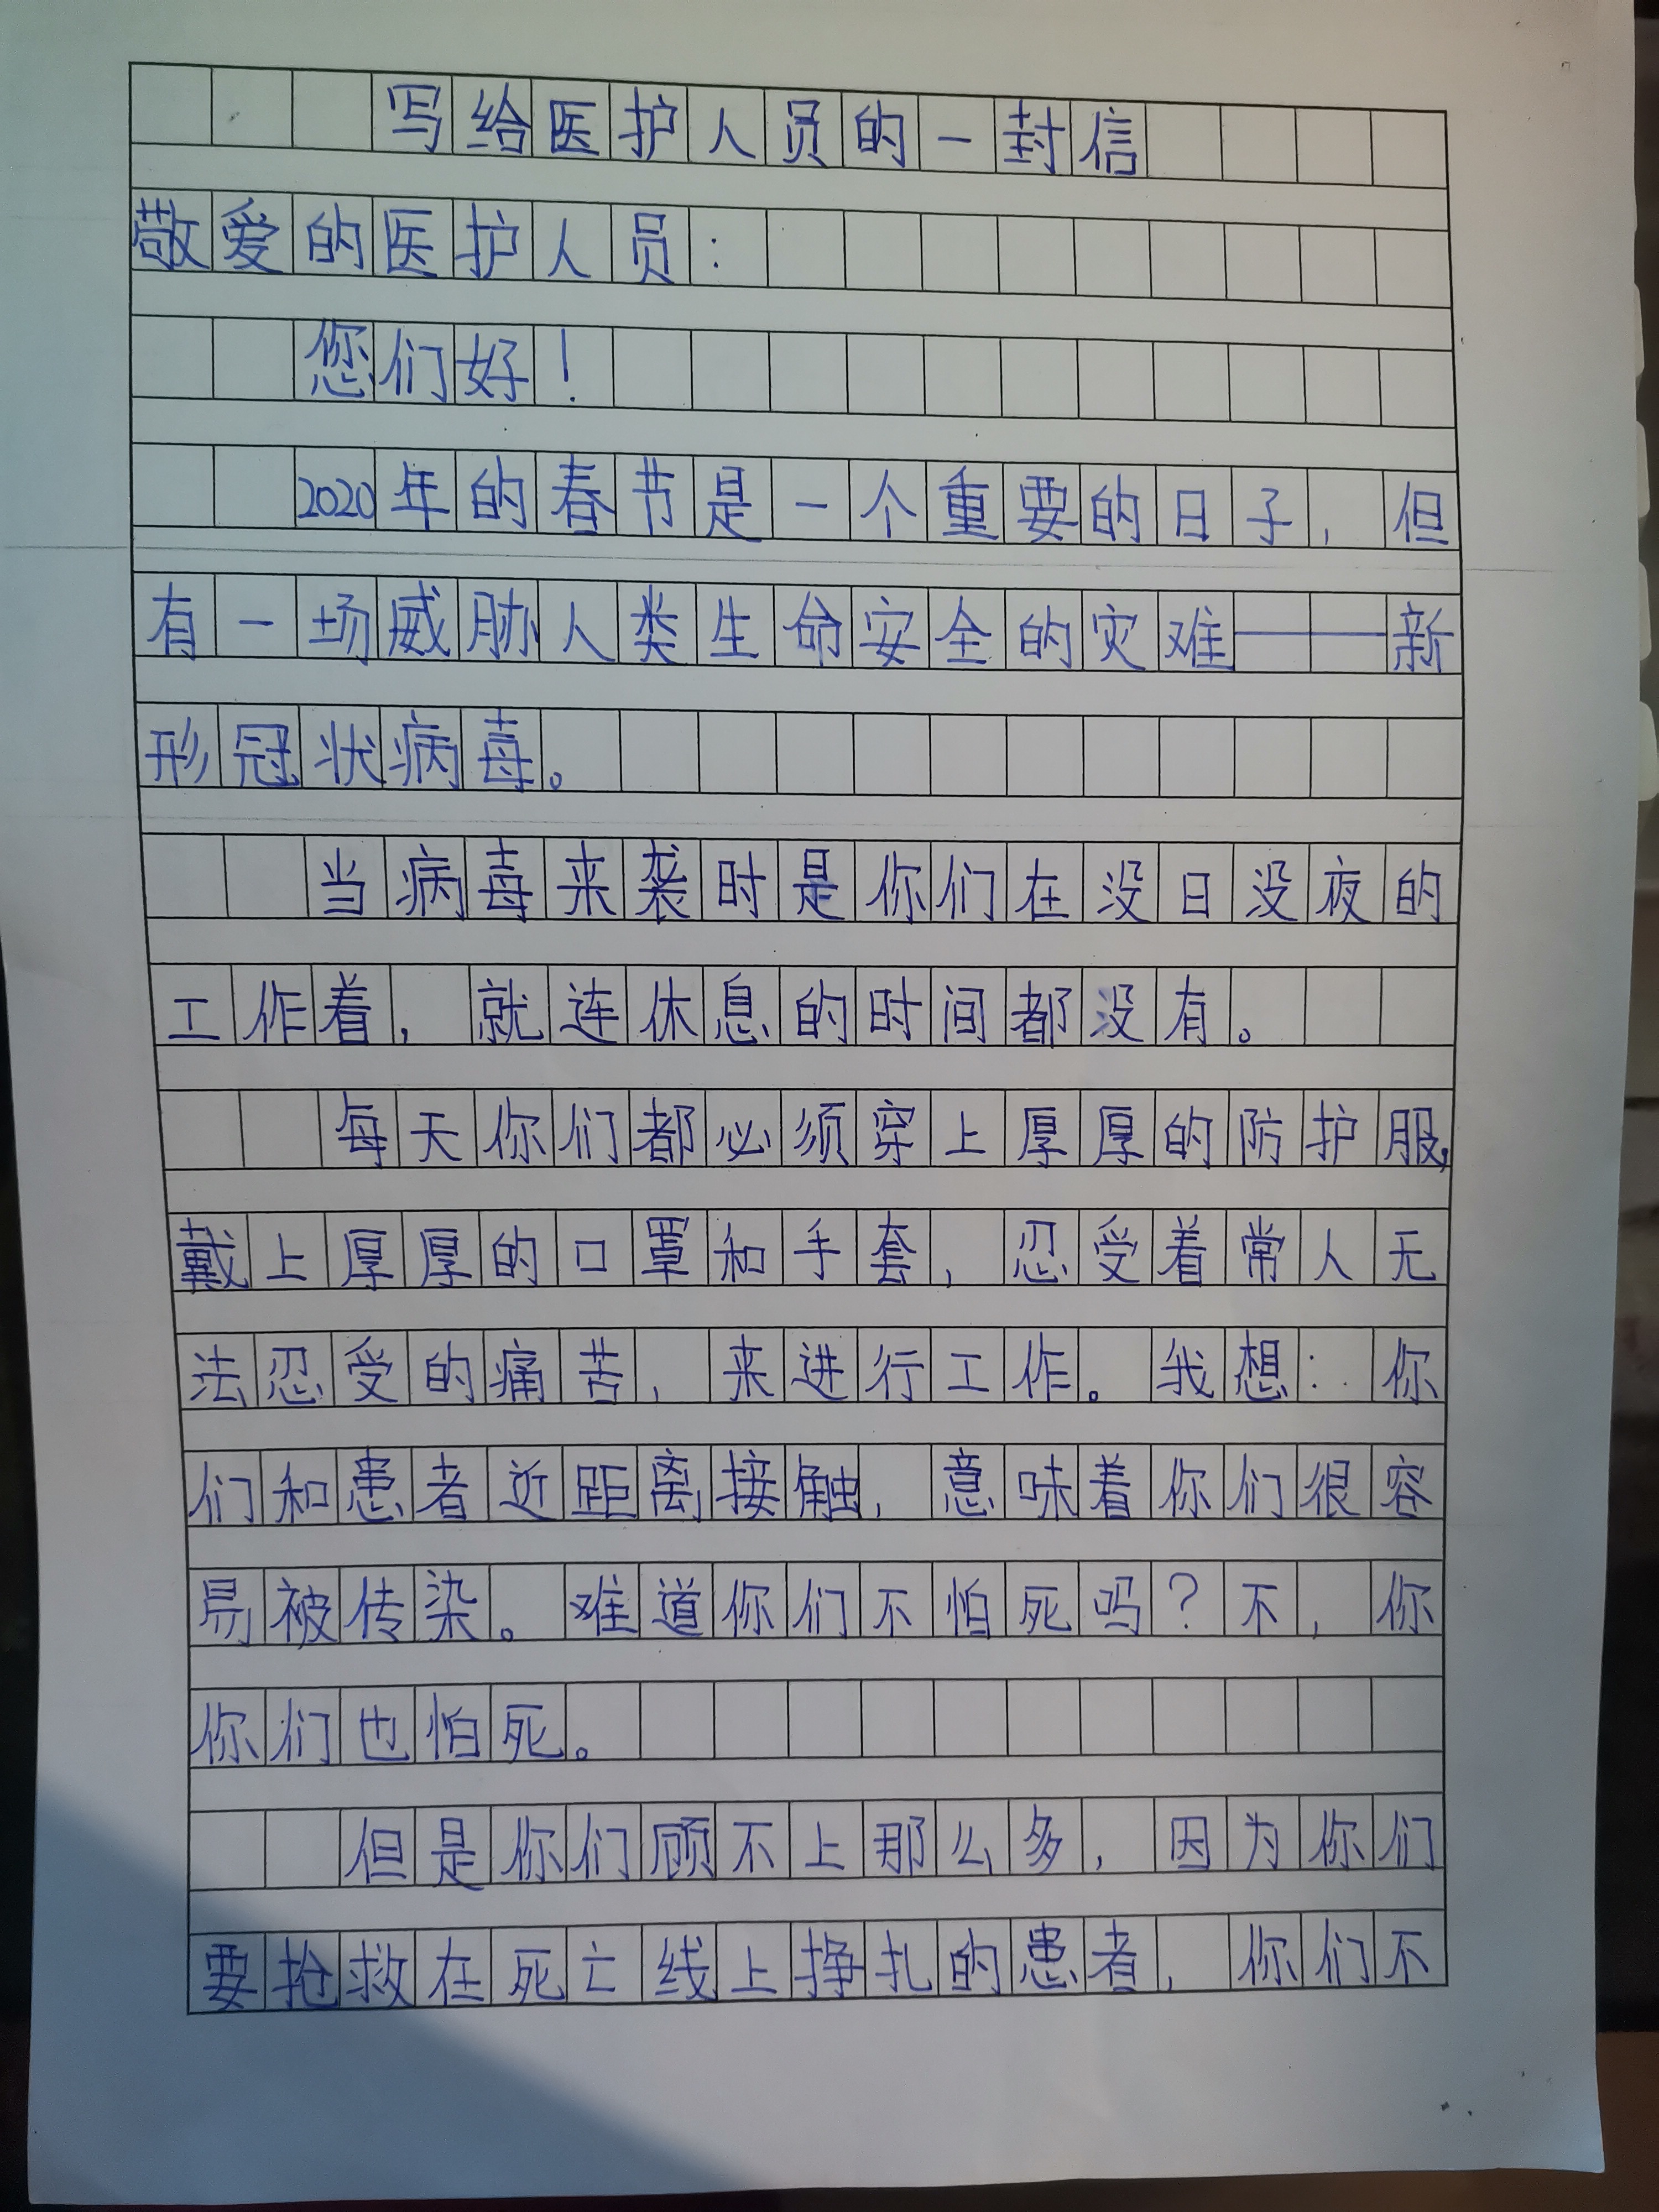 写给医护人员的一封信
敬爱的医护人员：
您们好！
2020年的春节是一个重要的日子，但
有一场威胁人类生命安全的灾难——新
形冠状病毒。
当病毒来袭时是你们在没日没夜的
工作着，就连休息的时间都没有。
每天你们都必须穿上厚厚的防护服，
戴上厚厚的口罩和手套，忍受着常人无
法忍受的痛苦，来进行工作。我想：你
们和患者近距离接触，意味着你们很容
易被传染。难道你们不怕死吗？不，你
你们也怕死。
但是你们顾不上那么多，因为你们
要抢救在死亡线上挣扎的患者，你们不